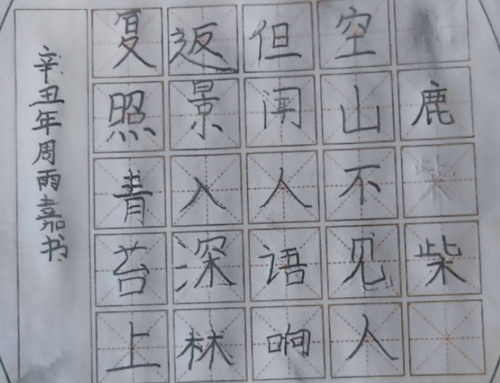 鹿柴
空山不见人
但闻人语响
返景入深林
复照青苔上
辛丑年周雨嘉书